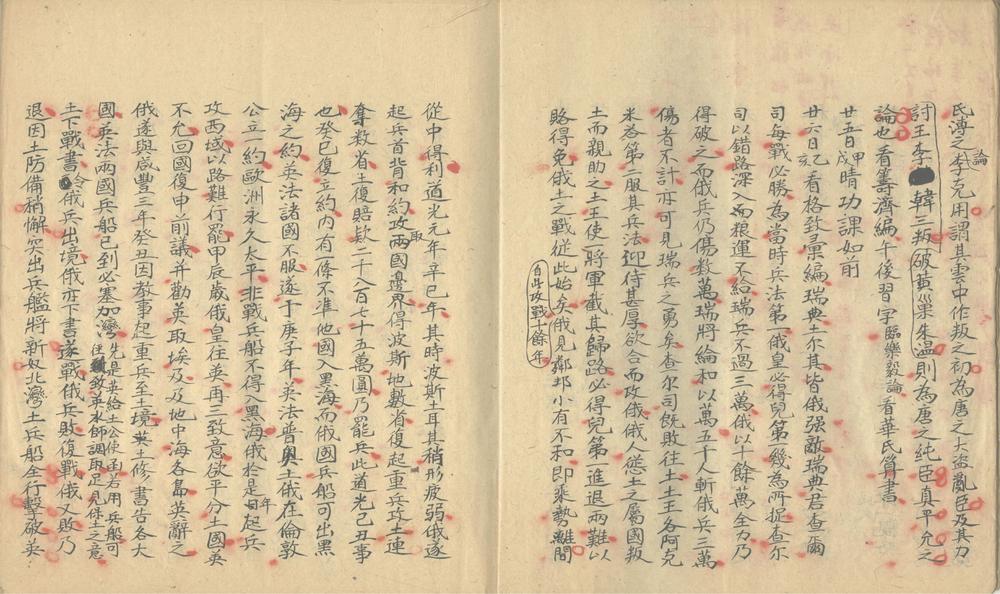 氏濤之論李克用謂其雲中作叛之初為唐之大盜亂臣及其力
討王李韓三叛破黃巢朱溫則為唐之純臣真平允之
論也看籌濟編午後習字臨樂毅論看華氏算書
廿五日戊甲晴功課如前
廿六日己亥看格致彙編瑞典土尔其皆俄強敵瑞典君查爾
司每戰必勝為當時兵法第一俄皇必得兒第一幾為所捉查尔
司以錯路深入而粮運不給瑞兵不過三萬俄以十餘萬全力乃
得破之而俄兵仍傷数萬瑞將綸和以萬五千人斬俄兵三萬
傷者不計亦可見瑞兵之勇矣查尔司既敗往土土王各阿克
米荅第二服其兵法迎待甚厚欲合而攻俄俄人慫土之屬國叛
土而親助之土王使一將軍截其歸路必得兒第一進退兩難以
賂得免俄土之戰從此始矣俄見鄰邦小有不和即乘勢離間
自此攻戰十餘年
從中得利道光元年辛巳年其時波斯土耳其稍形疲弱俄遂
起兵首背和約攻取兩國邊界得波斯地數省復起重兵攻土連
奪数省土復賠款二千八百七十五萬圓乃罷兵此道光己丑事
也癸巳復立約內有一條不准他國入黑海而俄國兵船可出黑
海之約英法諸國不服遂于庚子年英法普奧土俄在倫敦
公立一約歐洲永久太平非戰兵船不得入黑海俄於是年起兵
攻西域以路難行罷甲辰歲俄皇往英再三致意欲平分土國英
不允回國復申前議并勸英取埃及及地中海各島英辭之
俄遂與咸豐三年癸丑因教事起重兵至土境土修書告各大
國英法兩國兵船已到必塞加灣先是英給土公使函若用兵船可徑致英水師調用足見保土之意
土下戰書令俄兵出境俄亦下書遂戰俄兵敗復戰俄又敗乃
退因土防備稍懈突出兵艦將新奴北灣土兵船全行擊破英